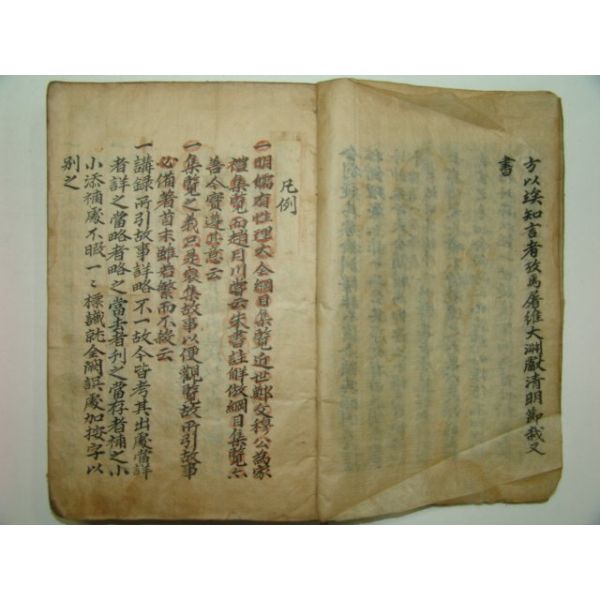 方以竢知言者攷焉屠維大淵獻清明節哉又
書
凡例
一明儒有性理大全綱目集覽近世鄭文穆公爲家
禮集覽而趙月川嘗云朱書註解倣綱目集覽亦
善今實遵其意云
一集覽之義只是裒集故事以便觀覽故所引故事
必備著首末雖若繁而不殺云
一講錄所引故事詳略不一故今皆考其出處當詳
者詳之當略者略之當去者刊之當存者補之小
小添補處不暇一〻標識就全闕誤處加按字以
別之